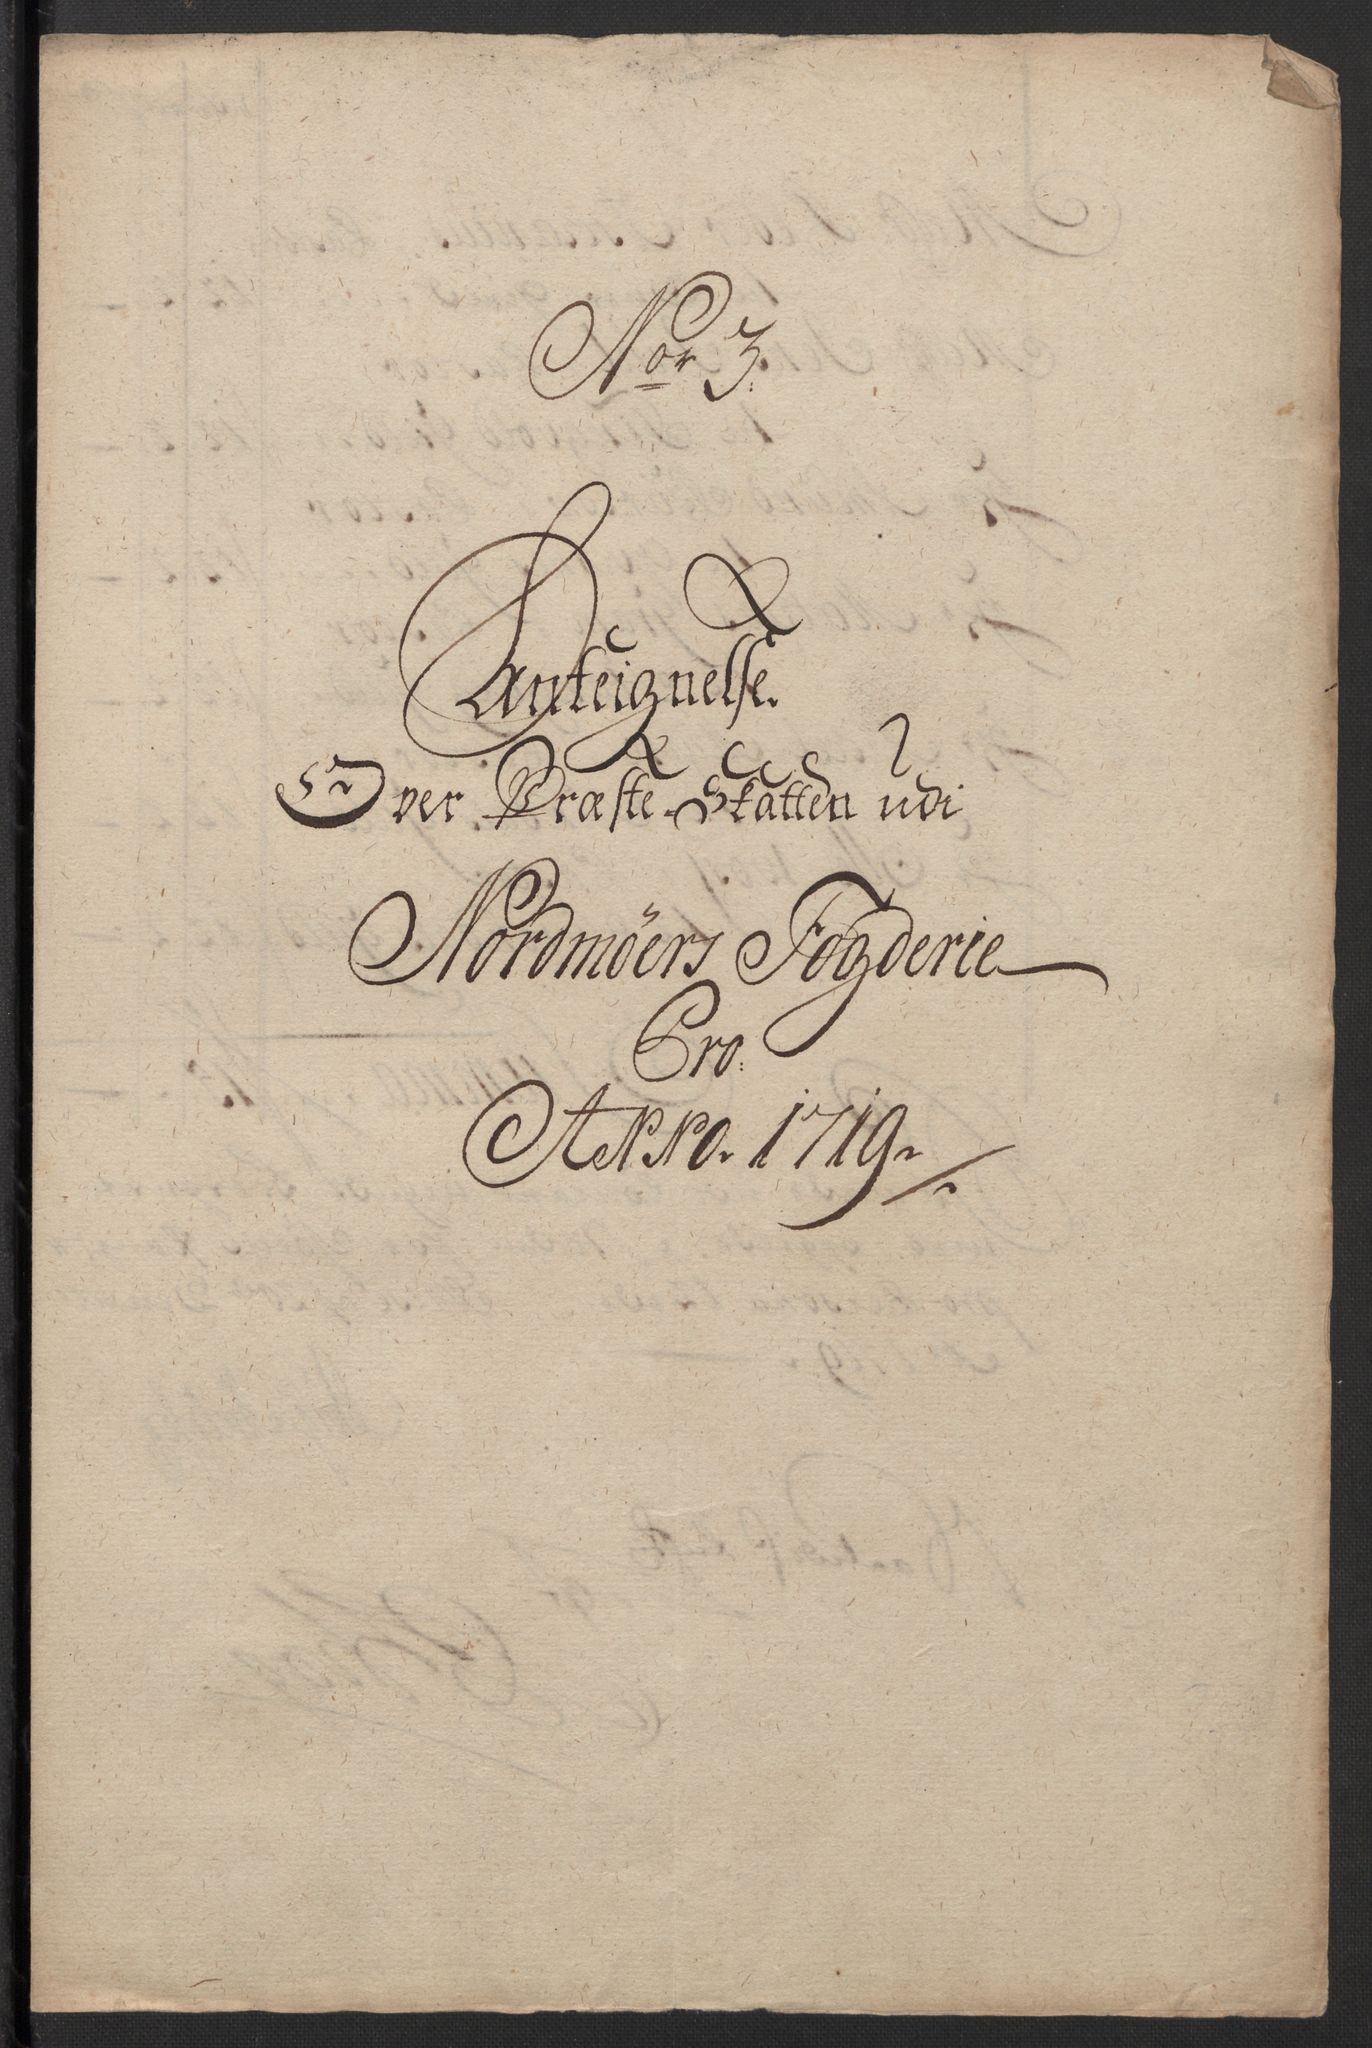 Nor 3.
Anteignelse.
Over Præste Skatten udi
Nordmöers Fogderie
Pro.
ANNO. 1719